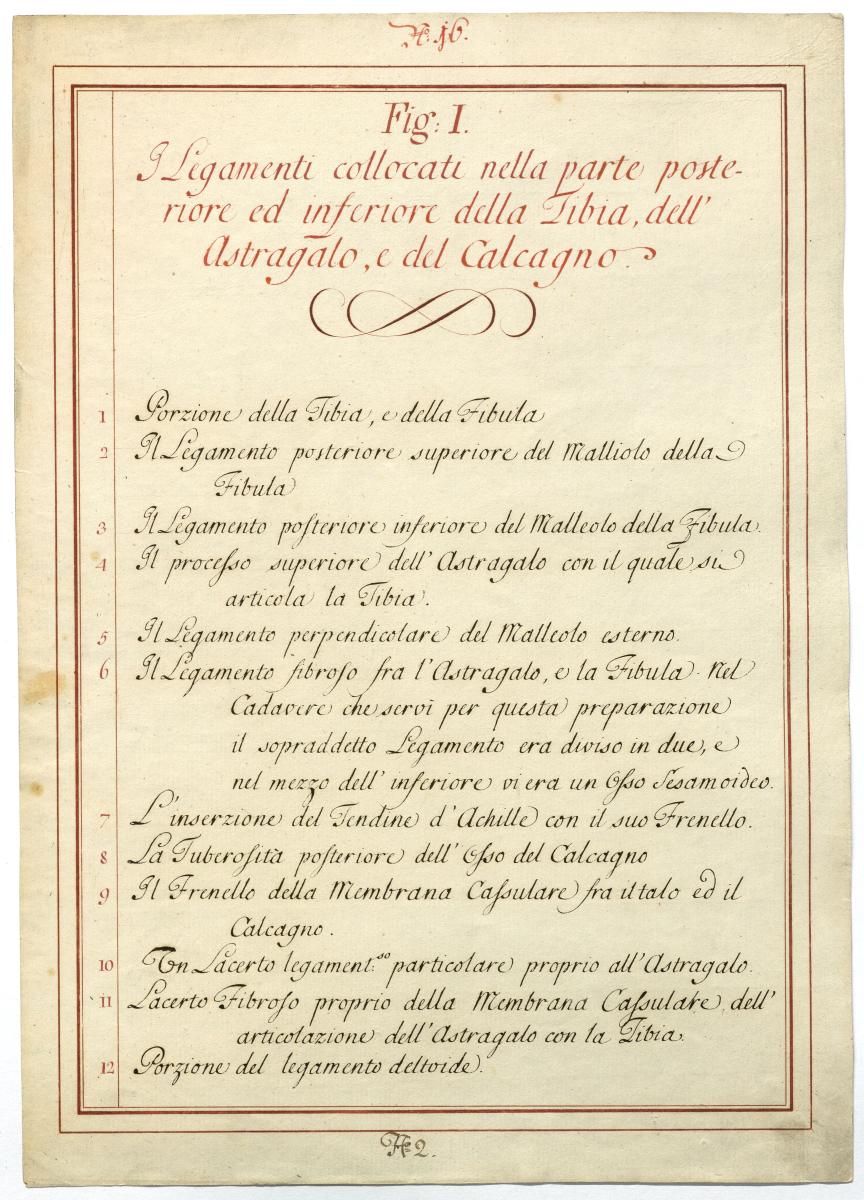 N.º 16.
Fig: I.
I Legamenti collocati nella parte poste-
riore ed inferiore della Tibia, dell'
Astragalo, e del Calcagno.
1 Porzione della Tibia, e della Fibula
2 Il Legamento posteriore superiore del Malliolo della
Fibula
3 Il Legamento posteriore inferiore del Malleolo della Fibula.
4 Il processo superiore dell' Astragalo con il quale si
articola la Tibia.
5 Il Legamento perpendicolare del Malleolo esterno.
6 Il Legamento fibroso fra l'Astragalo, e la Fibula. Nel
Cadavere che servì per questa preparazione
il sopraddetto Legamento era diviso in due, e
nel mezzo dell' inferiore vi era un Osso Sesamoideo.
7 L'inserzione del Tendine d'Achille con il suo Frenello.
8 La Tuberosità posteriore dell' Osso del Calcagno
9 Il Frenello della Membrana Cassulare fra il talo ed il
Calcagno.
10 Un Lacerto legament:so particolare proprio all'Astragalo.
11 Lacerto Fibroso proprio della Membrana Cassulare dell'
articolazione dell'Astragalo con la Tibia.
12 Porzione del legamento deltoide.
2.